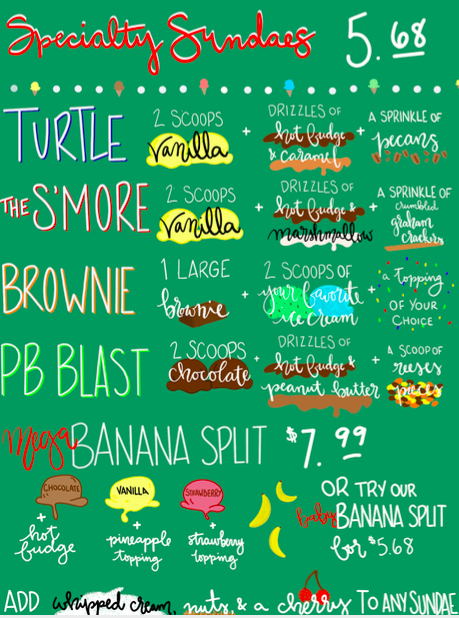 Specialty Sundaes 5.68
TURTLE
2 SCOOPS
Vanilla
+
DRIZZLES OF
hot fudge
& caramel
+
A SPRINKLE OF
pecans
THE S'MORE
2 SCOOPS
Vanilla
+
DRIZZLES OF
hot fudge &
marshmallow
+
A SPRINKLE OF
crumbled
graham
crackers
BROWNIE
1 LARGE
brownie
+
2 SCOOPS OF
your favorite
ice cream
+
a topping
OF YOUR
CHOICE
PB BLAST
2 SCOOPS
chocolate
+
DRIZZLES OF
hot fudge &
peanut butter
+
A SCOOP OF
reeses
pieces
Mega BANANA SPLIT $7.99
CHOCOLATE
+
hot
fudge
VANILLA
+
pineapple
topping
STRAWBERRY
+
strawberry
topping
OR TRY OUR
baby BANANA SPLIT
for $5.68
ADD whipped cream, nuts, & a cherry TO ANY SUNDAE